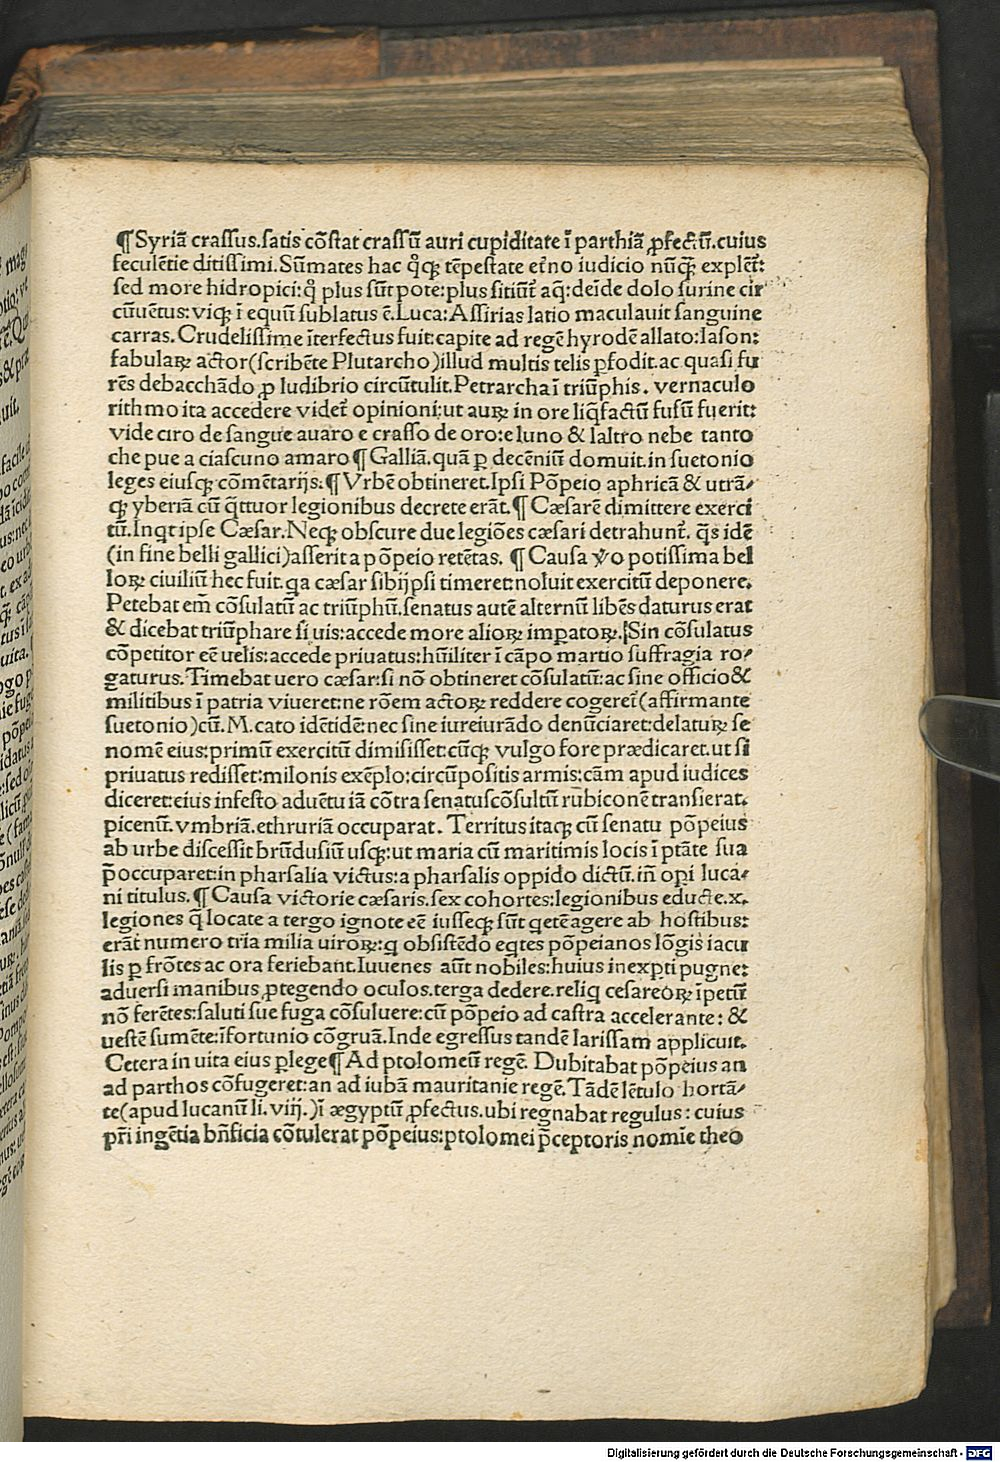 ¶Syriā crassus.satis cōstat crassū auri cupiditate ī parthiā ꝓfectū.cuius
feculētie ditissimi.Sūmates hac qͦqꝫ tēpestate et̄no iudicio nūqꝫ explet̄:
sed more hidropici:qͦ plus sūt pote:plus sitiūt aq̄:deīde dolo surine cir
cūuētus:viqꝫ ī equū sublatus ē.Luca:Assirias latio maculauit sanguine
carras.Crudelissime īterfectus fuit:capite ad regē hyrodē allato:Iason:
fabulaꝝ actor(scribēte Plutarcho)illud multis telis ꝑfodit.ac quasi fu
rēs debacchādo ꝓ ludibrio circūtulit.Petrarcha ī triūphis. vernaculo
rithmo ita accedere videt̄ opinioni:ut auꝝ in ore liq̄factū fusū fuerit:
vide ciro de sangue auaro e crasso de oro:e luno & laltro nebe tanto
che pue a ciascuno amaro¶Galliā.quā ꝑ decēniū domuit.in suetonio
leges eiusqꝫ cōmētarijs:¶Vrbē obtineret.Ipsi Pōpeio aphricā & utrā⸗
qꝫ yberiā cū q̄ttuor legionibus decrete erāt.¶Cæsarē dimittere exerci
tū.Inqt ipse Cæsar.Neqꝫ obscure due legiōes cæsari detrahunt̄. q̄s idē
(in fine belli gallici)asserit a pōpeio retētas. ¶Causa ꝟo potissima bel
loꝝ ciuiliū hec fuit.qa cæsar sibijpsi timeret:noluit exercitū deponere.
Petebat em̄ cōsulatū ac triūphū.senatus autē alternū libēs daturus erat
& dicebat triūphare si uis:accede more alioꝝ imꝑatoꝝ.Sin cōsulatus
cōpetitor eē uelis:accede priuatus:hūiliter ī cāpo martio suffragia ro⸗
gaturus.Timebat uero cæsar:si nō obtineret cōsulatū:ac sine officio&
militibus ī patria viueret:ne rōem actoꝝ reddere cogeret̄(affirmante
suetonio)cū.M.cato idētidē:nec sine iureiurādo denūciaret:delatuꝝ se
nomē eius:primū exercitū dimisisset:cūqꝫ vulgo fore prædicaret.ut si
priuatus redisset:milonis exēplo:circūpositis armis:cām apud iudices
diceret:eius infesto aduētu iā cōtra senatuscōsultū rubiconē transierat.
picenū.vmbriā.ethruriā occuparat. Territus itaqꝫ cū senatu pōpeius
ab urbe discessit brūdusiū usqꝫ:ut maria cū maritimis locis ī ptāte sua
p̄occuparet:in pharsalia victus:a pharsalis oppido dictū.iñ oꝑi luca⸗
ni titulus.¶Causa victorie cæsaris.sex cohortes:legionibus educte.x.
legiones q̄ locate a tergo ignote eē iusseqꝫ sūt qete agere ab hostibus:
erāt numero tria milia uiroꝝ:q obsistēdo eqtes pōpeianos lōgis iacu
lis ꝑ frōtes ac ora feriebant.Iuuenes aūt nobiles:huius inexꝑti pugne:
aduersi manibus ꝓtegendo oculos.terga dedere.reliq cesareoꝝ īpetū
nō ferētes:saluti sue fuga cōsuluere:cū pōpeio ad castra accelerante: &
uestē sumēte:īfortunio cōgruā.Inde egressus tandē larissam applicuit.
Cetera in uita eius ꝑlege¶Ad ptolomeū regē. Dubitabat pōpeius an
ad parthos cōfugeret:an ad iubā mauritanie regē.Tādē lētulo hortā⸗
te(apud lucanū li.viij.)ī ægyptū ꝓfectus.ubi regnabat regulus: cuius
pr̄i ingētia bn̄ficia cōtulerat pōpeius:ptolomei p̄ceptoris nomīe theo
Digitalisierung gefördert durch die Deutsche Forschungsgemeinschaft - DFG